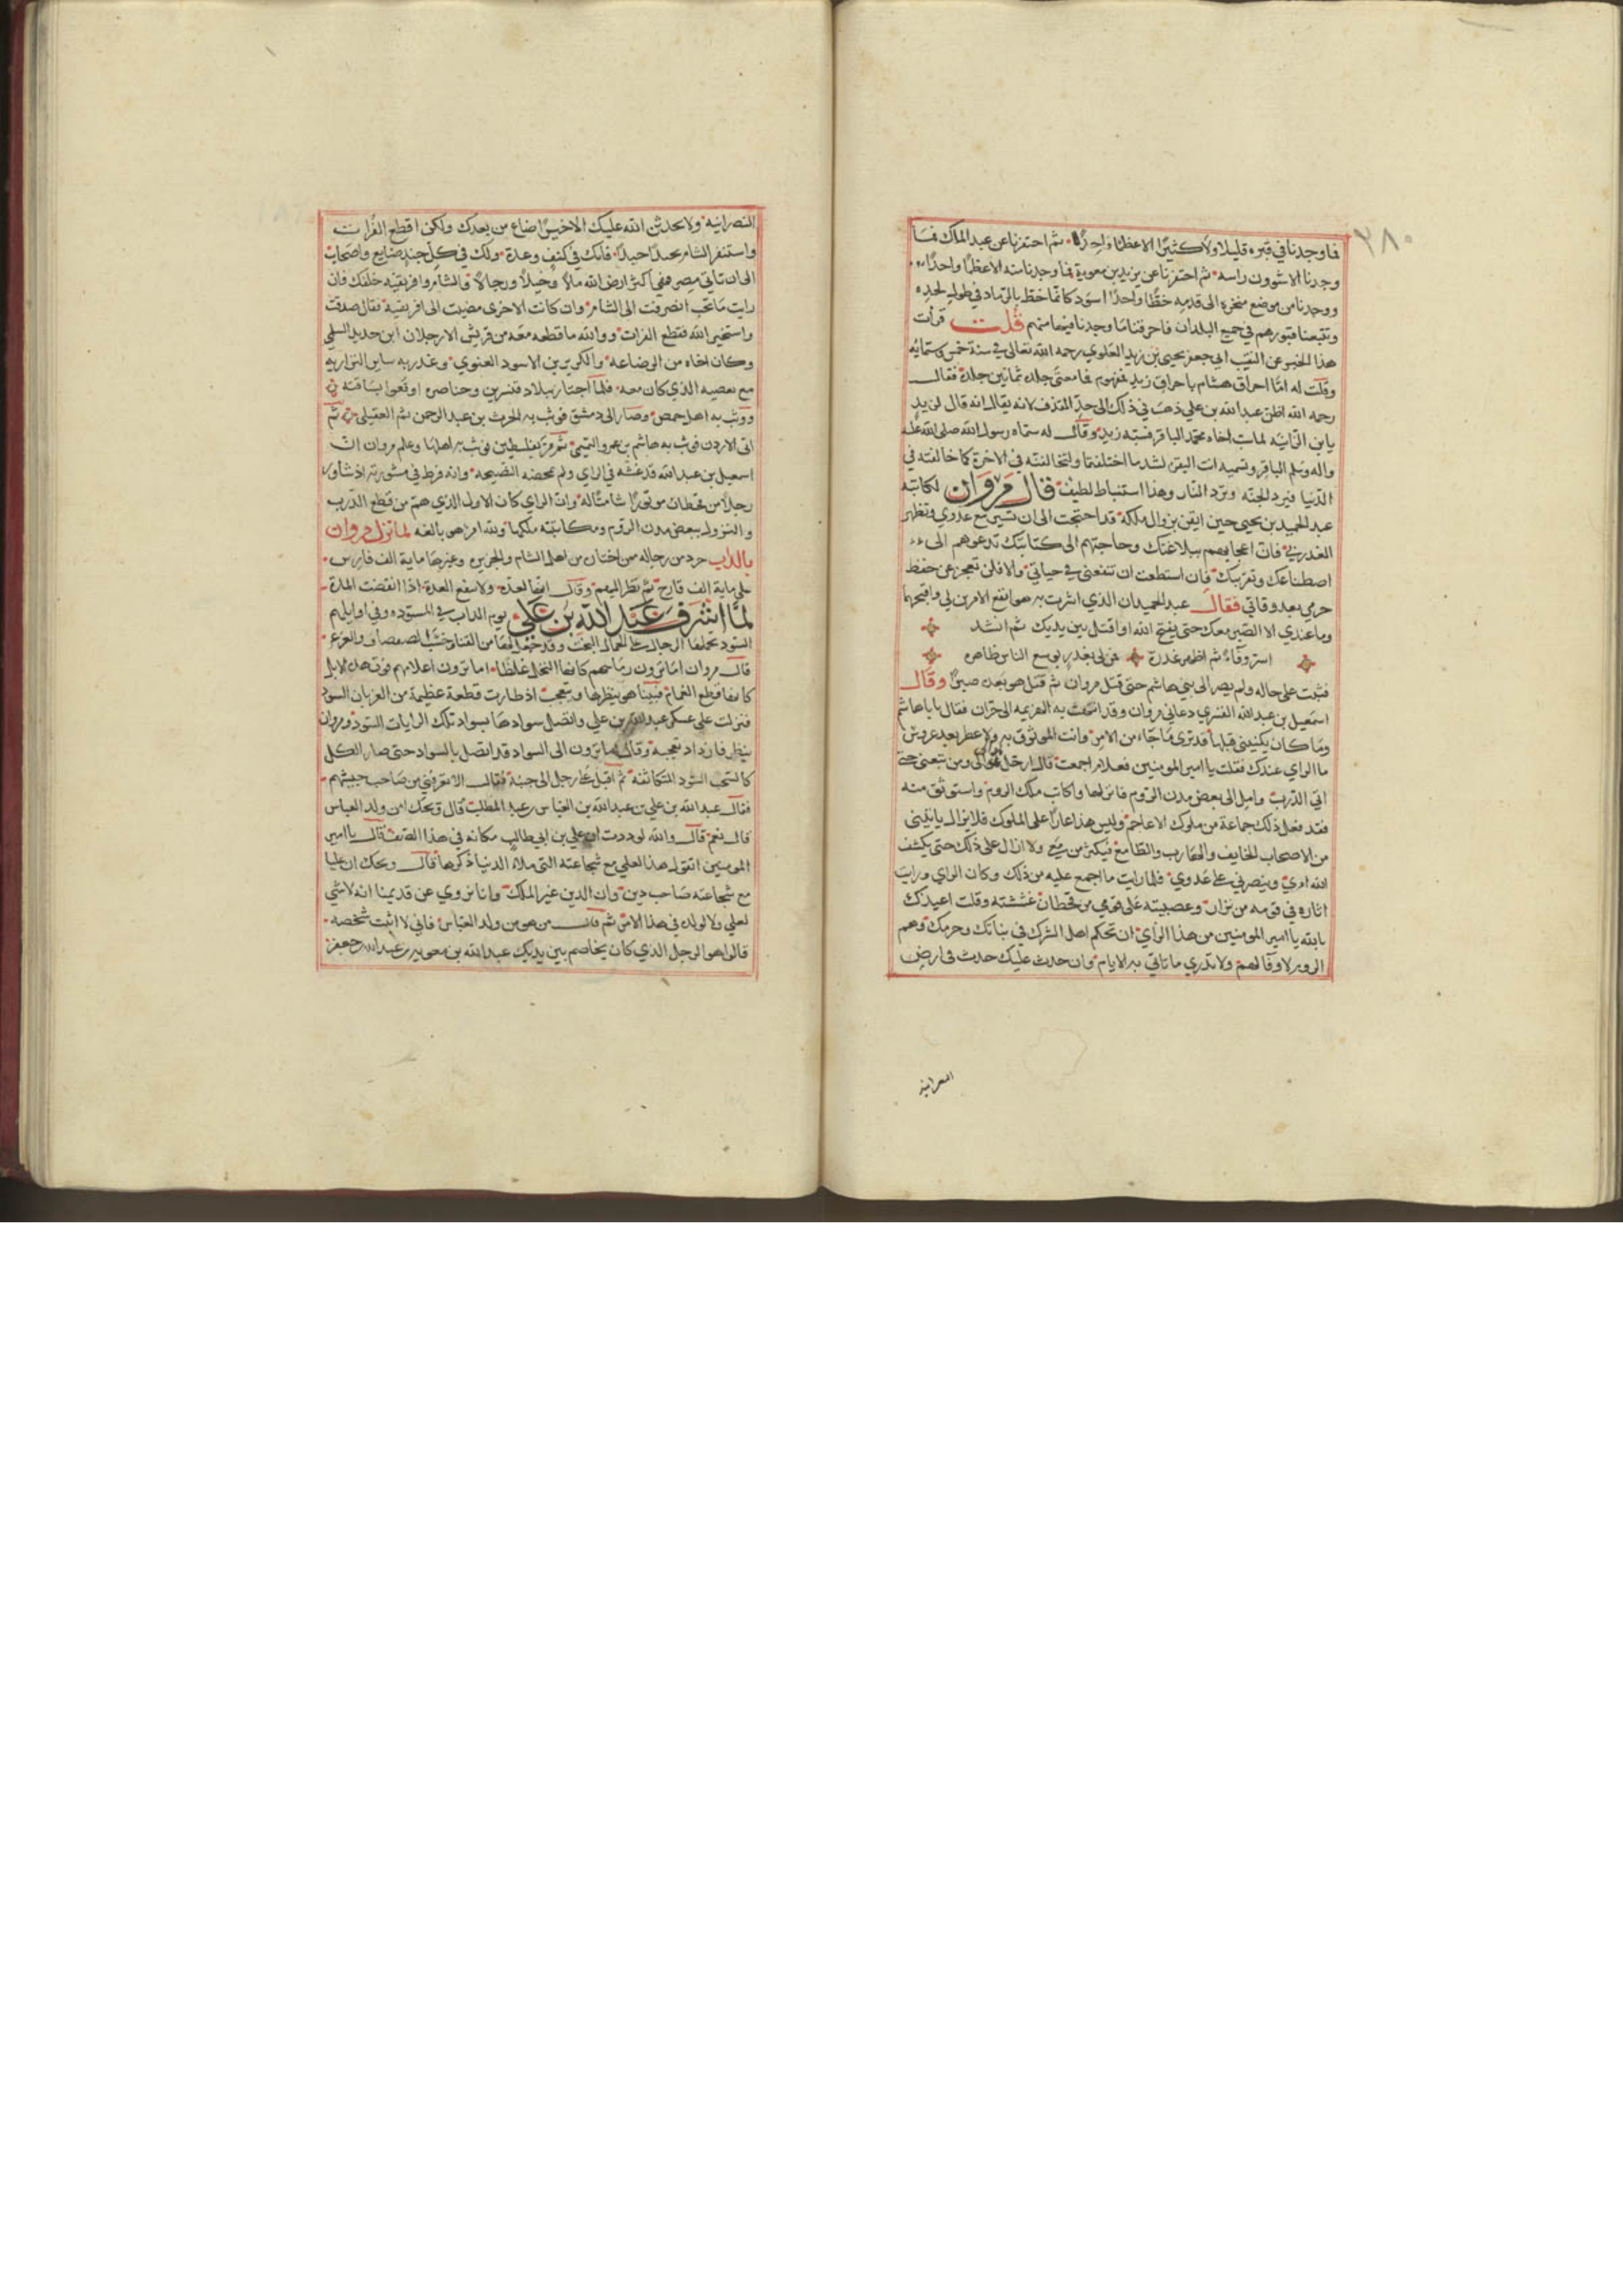 ٣٨٠
فما وجدنا في قبره قليلا ولا كثيرا الا عظما واحدا ثم احتفرنا عن عبد الملك فما
وجدنا الا شوون راسه ثم احتفرنا عن يزيد بن معوية فما وجدنا منه الا عظما واحدا
ووجدنا من موضع نحره الى قدمه خطا واحدا اسود كانما خط بالرماد في طول لحده
وتتبعنا قبورهم في جميع البلدان فاحرقنا ما وجدنا فيها منهم قلت قرأت
هذا الخبر عن النقيب ابي جعفر يحيى بن زيد العلوي رحمه الله تعالى في سنة خمس وستمايه
وقلت له اما احراق هشام باحراق زيد فمفهوم فما معنى جلده ثمانين جلدة فقال
رحمه الله اظن عبد الله بن علي ذهب في ذلك الى حد القذف لانه يقال انه قال لزيد
يا ابن الزانيه لما سب اخاه محمد الباقر فسبه زيد وقال له سماه رسول الله صلى الله عليه
واله وسلم الباقر وتسميه انت البقرة لشد ما اختلفتما ولتخالفنه في الاخرة كما خالفته في
الدنيا فيرد الجنه وترد النار وهذا استنباط لطيف قال مروان لكاتبه
عبد الحميد بن يحيى حين ايقن بزوال ملكه قد احتجت الى ان تسير مع عدوي وتظهر
الغدر بي فان اعجابهم ببلاغتك وحاجتهم الى كتابتك تدعوهم الى
اصطناعك وتقريبك فان استطعت ان تنفعني في حياتي والا فلن تعجز عن حفظ
حرمي بعد وفاتي فقال عبد الحميد ان الذي اشرت به هو انفع الامرين لي واقبحهما
وما عندي الا الصبر معك حتى يفتح الله او اقتل بين يديك ثم انشد
اسر وفاء ثم اظهر غدرة فمن لي بعذر يوسع الناس ظاهره
فثبت على حاله ولم يصر الى بني هاشم حتى قتل مروان ثم قتل هو بعده صبرا وقال
اسمعيل بن عبد الله القسري دعاني مروان وقد انتهت به الهزيمه الى حران فقال يا با هاشم
وما كان يكنيني قبلها قد ترى ما جاء من الامر وانت الموثوق به ولا عطر بعد عروس
ما الراي عندك فقلت يا امير المومنين فعلام اجمعت قال ارحل بموالي ومن تبعني حتى
اتي الدرب واميل الى بعض مدن الروم فانزلها واكاتب ملك الروم واستوثق منه
فقد فعل ذلك جماعة من ملوك الاعاجم وليس هذا عارا على الملوك فلا يزال ياتيني
من الاصحاب الخايف والهارب والطامع فيكثر من معي ولا ازال على ذلك حتى يكشف
الله امري وينصرني على عدوي فلما رايت ما اجمع عليه من ذلك وكان الراي ورايت
اثاره في قومه من نزار وعصبيته على قومي من قحطان غششته وقلت اعيذك
بالله يا امير المومنين من هذا الراي ان تحكم اهل الشرك في بناتك وحرمك وهم
الروم لا وفا لهم ولا تدري ما تاتي به الايام وان حدث عليك حدث في ارض
النصرانيه
النصرانيه ولا يحدثن الله عليك الا خيرا ضاع من بعدك ولكن اقطع الفرات
واستنفر الشام جندا جندا فانك في كنف وعدة ولك في كل جند صنايع واصحاب
الى ان تاتي مصر فهي اكثر ارض الله مالا وخيلا ورجالا فالشام وافريقيه خلفك فان
رايت ما تحب انصرفت الى الشام وان كانت الاخرى مضيت الى افريقية فقال صدقت
واستخير الله فقطع الفرات ووالله ما قطعه معه من قريش الا رجلان ابن حديد السلمي
وكان اخاه من الرضاعة والكوثر بن الاسود الغنوي وغدر به ساير النزاريه
مع تعصبه الذي كان معه فلما اجتاز ببلاد قنسرين وخناصره اوقعوا بساقته
ووثب به اهل حمص وصار الى دمشق فوثب به الحرث بن عبد الرحمن ثم العقيلي ثم
اتى الاردن فوثب به هاشم بن عمرو التميمي ثم مر بفلسطين فوثب به اهلها وعلم مروان ان
اسمعيل بن عبد الله قد غشه في الراي ولم يمحضه النصيحه وانه فرط في مشورته اذ شاور
رجلا من قحطان موتورا شانئا له وان الراي كان الاول الذي هم من قطع الدرب
والنزول ببعض مدن الروم ومكاتبته ملكها ولله امر هو بالغه لما نزل مروان
بالزاب جرد من رجاله ممن اختار من اهل الشام والجزيره وغيرها مايه الف فارس
على ماية الف قارح ثم نظر اليهم وقال انها لعدة ولا تنفع العدة اذا انقضت المدة
لما اشرف عبد الله بن علي يوم الزاب في المسوده وفي اوايلهم
السود تحملها الرجال على الجمال البخت وقد جعل لها من القنا خشب الصفصاف والغرب
قال مروان اما ترون رماحهم كانها النخل غلظا اما ترون اعلامهم فوق هذه الابل
كانها قطع الغمام فبينا هو ينظرها ويتعجب اذ طارت قطعة عظيمة من الغربان السود
فنزلت على عسكر عبد الله بن علي واتصل سوادها بسواد تلك الرايات السود ومروان
ينظر فازداد تعجبه وقال اما ترون الى السواد قد اتصل بالسواد حتى صار الكل
كالسحب السود المتكاثفة ثم اقبل على رجل الى جنبه فقال الا تعرفني من صاحب جيشهم
فقال عبد الله بن علي بن عبد الله بن العباس بن عبد المطلب قال ويحك امن ولد العباس
قال نعم قال والله لوددت ان علي بن ابي طالب مكانه في هذا الصف قال يا امير
المومنين اتقول هذا لعلي مع شجاعته التي ملاء الدنيا ذكرها قال ويحك ان عليا
مع شجاعته صاحب دين وان الدين غير الملك وانا نروي عن قديمنا انه لا شي
لعلي ولا لولده في هذا الامر ثم قال من هو من ولد العباس فاني لا اثبت شخصه
قالوا هو الرجل الذي كان يخاصم بين يديك عبد الله بن معويه بن عبد الله بن جعفر